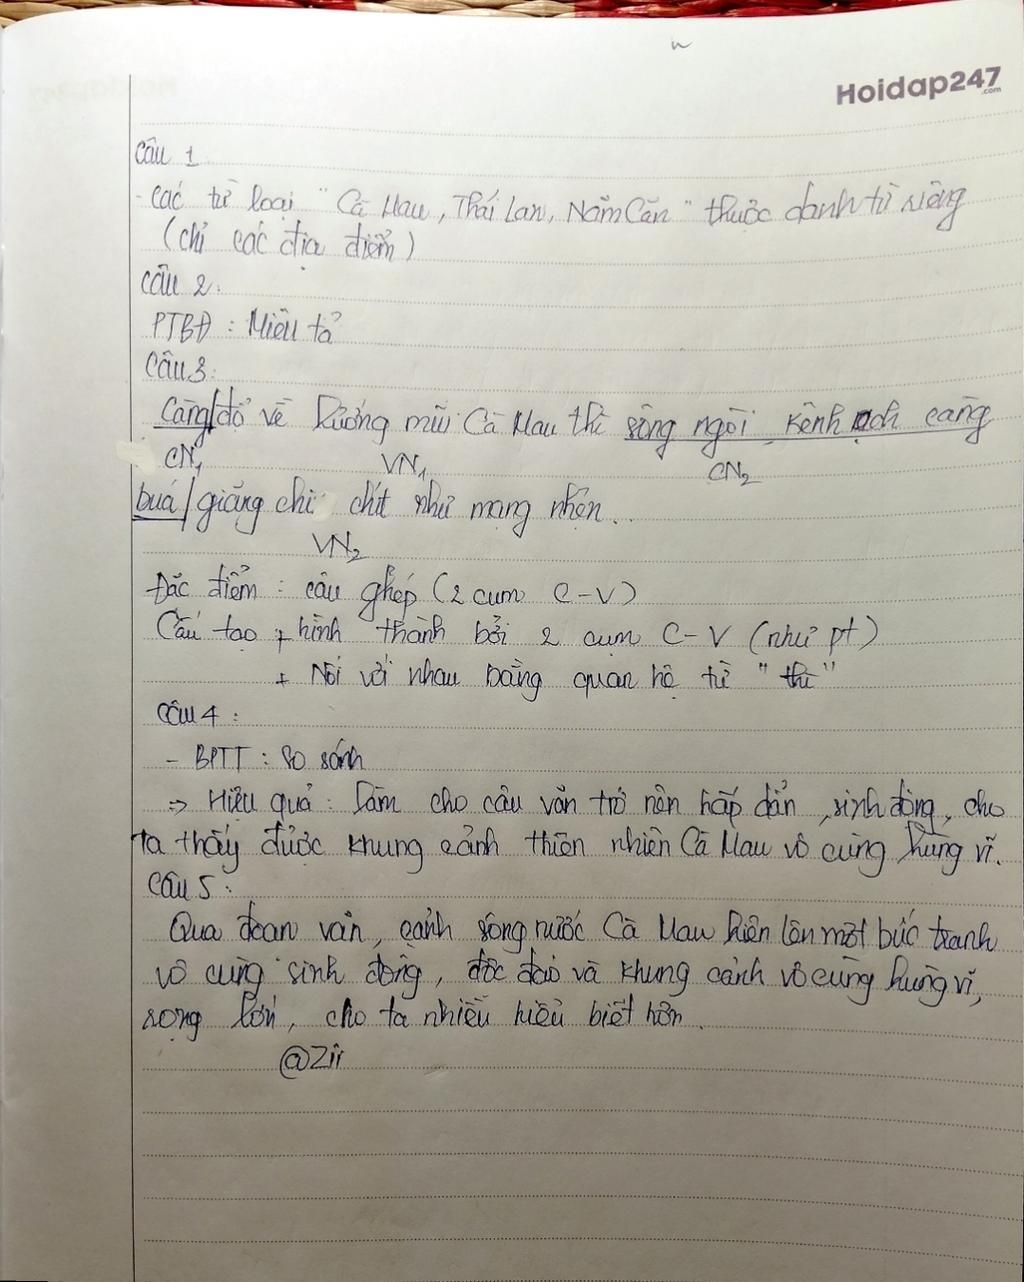 Hoidap247
.com
Câu 1
- Các từ loại "Cà Mau, Thái Lan, Năm Căn" thuộc danh từ riêng
(chỉ các địa điểm)
Câu 2:
PTBĐ: Miêu tả
Câu 3:
Càng/đổ về hướng mũi Cà Mau thì sông ngòi, kênh rạch càng
CN1 VN1 CN2
buả/giăng chi chít như mạng nhện..
VN2
Đặc điểm: câu ghép (2 cụm C-V)
Cấu tạo + hình thành bởi 2 cụm C-V (như pt)
+ Nối với nhau bằng quan hệ từ "thì"
Câu 4:
- BPTT: So sánh
=> Hiệu quả: Làm cho câu văn trở nên hấp dẫn, sinh động, cho
ta thấy được khung cảnh thiên nhiên Cà Mau vô cùng hùng vĩ.
Câu 5:
Qua đoạn văn, cảnh sông nước Cà Mau hiện lên một bức tranh
vô cùng sinh động, độc đáo và khung cảnh vô cùng hùng vĩ,
rộng lớn, cho ta nhiều hiểu biết hơn.
@Zii